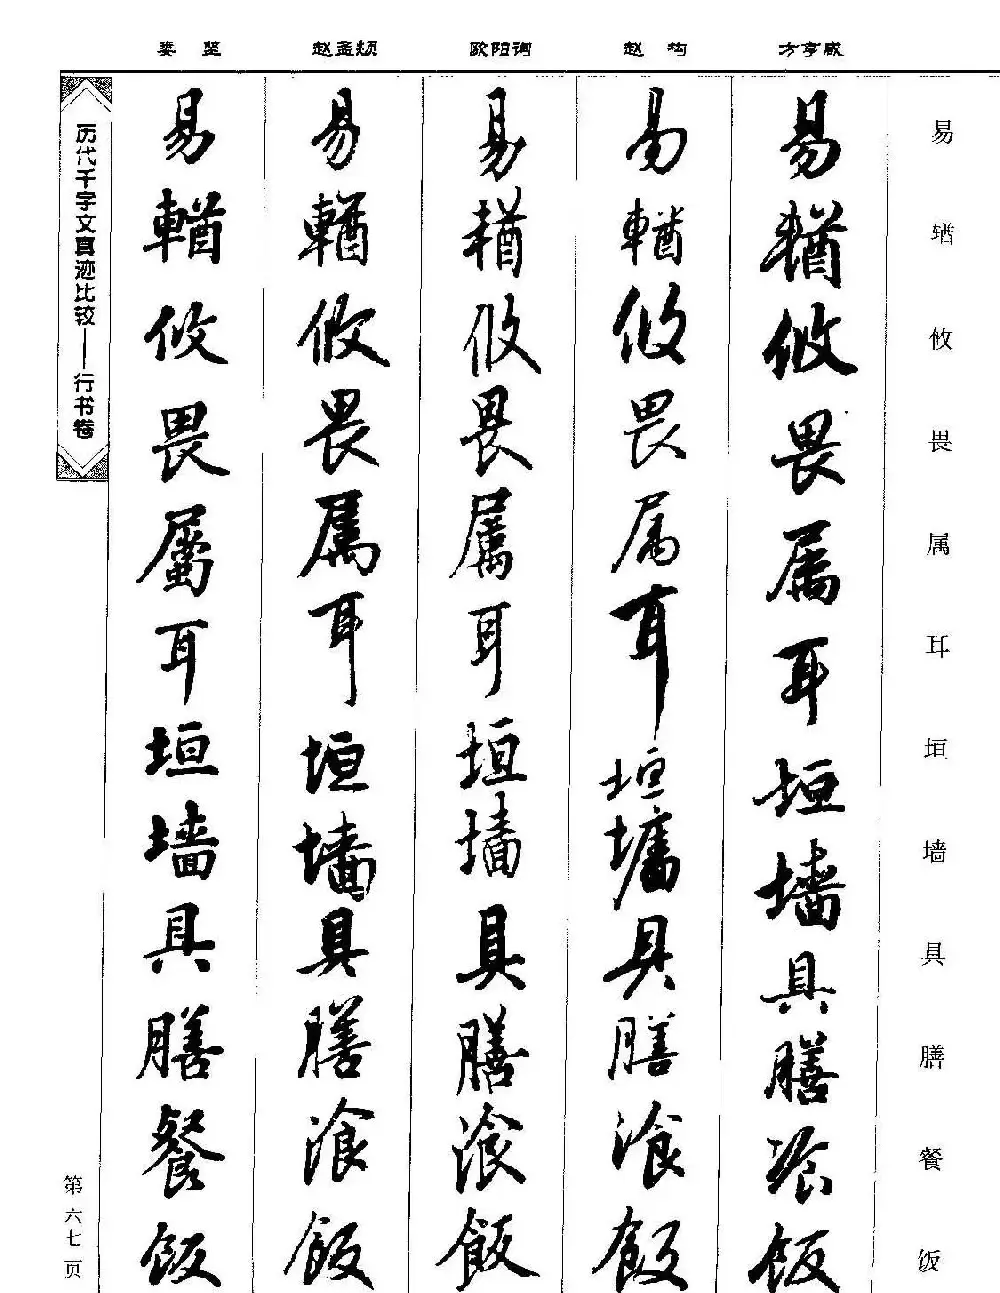 娄 坚
赵孟頫
欧阳询
赵 构
方亨咸
历代千字文真迹比较——行书卷
易𬨎攸畏属耳垣墙具膳餐饭
易輶攸畏属耳垣墙具膳飡飯
易輶攸畏属耳垣墙具膳湌飯
易輶攸畏属耳垣墙具膳湌飯
易輶攸畏属耳垣墙具膳湌飯
易輶攸畏屬耳垣墙具膳餐飯
第六七页